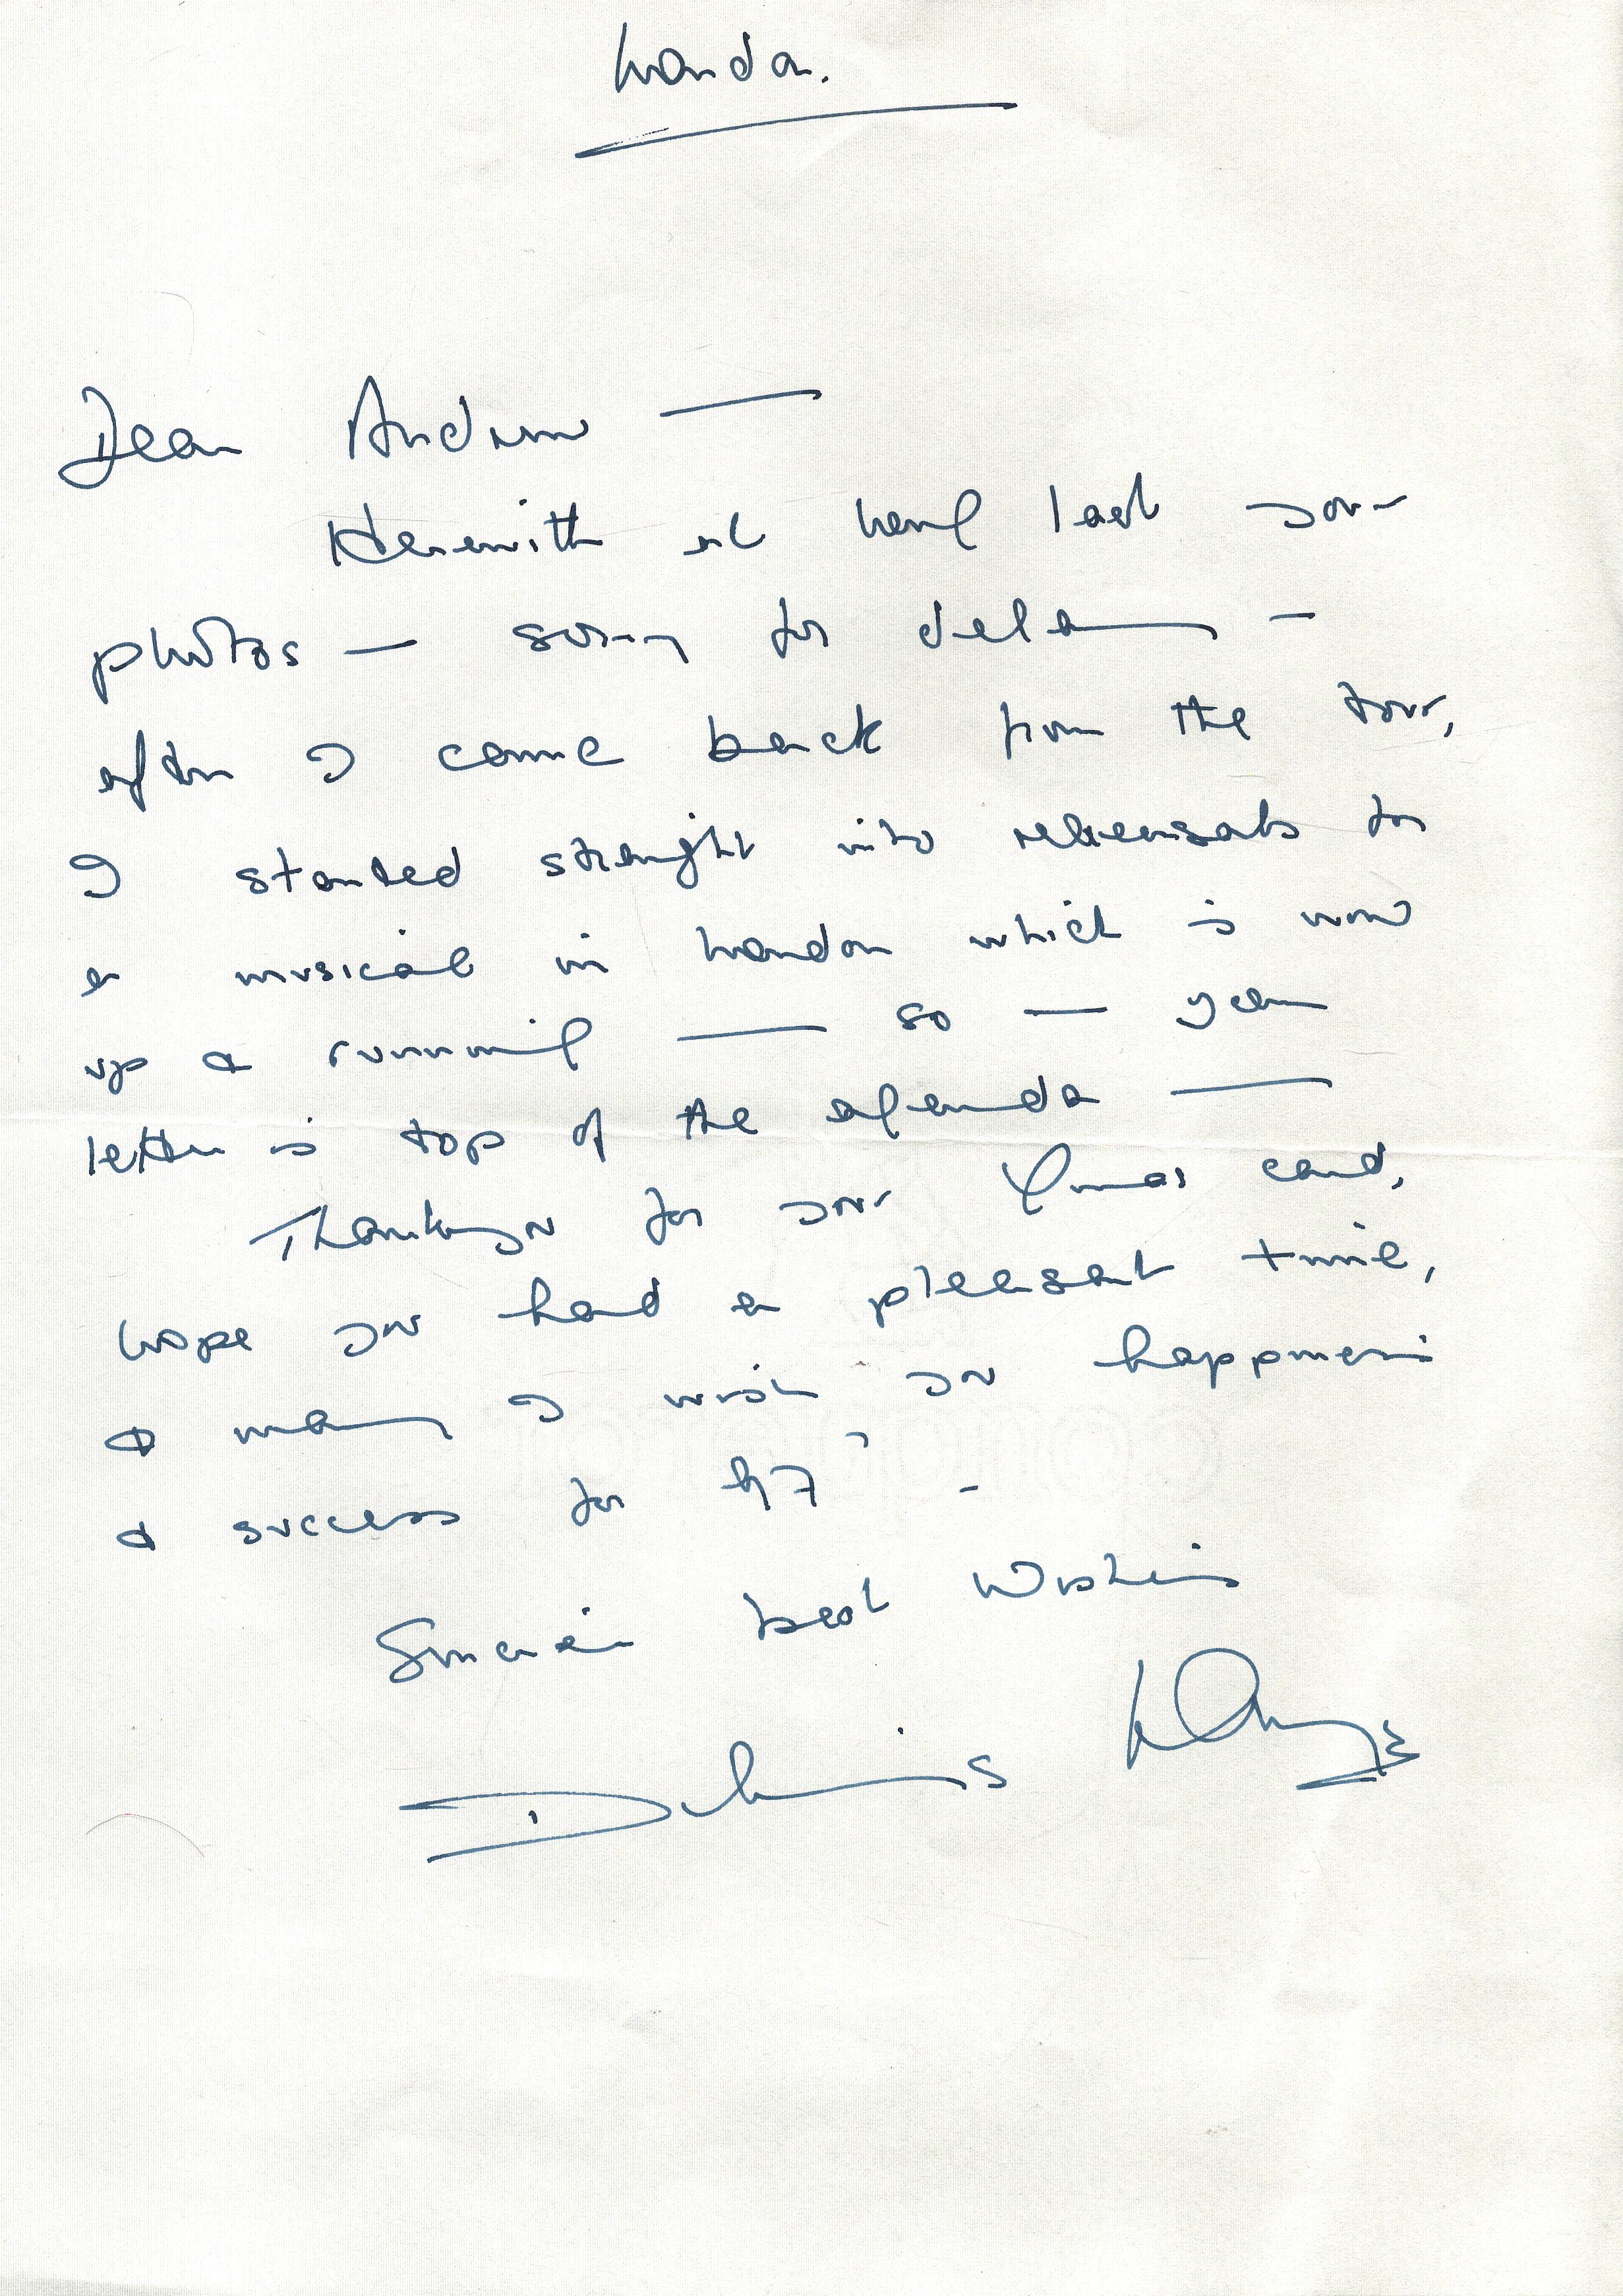 London.
Dear Andrew —
Herewith at long last your
photos — sorry for delay —
after I came back from the tour,
I started straight into rehearsals for
a musical in London which is now
up & running — so — your
letter is top of the agenda —
Thankyou for your Xmas card,
hope you had a pleasant time,
& may I wish you happiness
& success for 97 -
Sincere best wishes